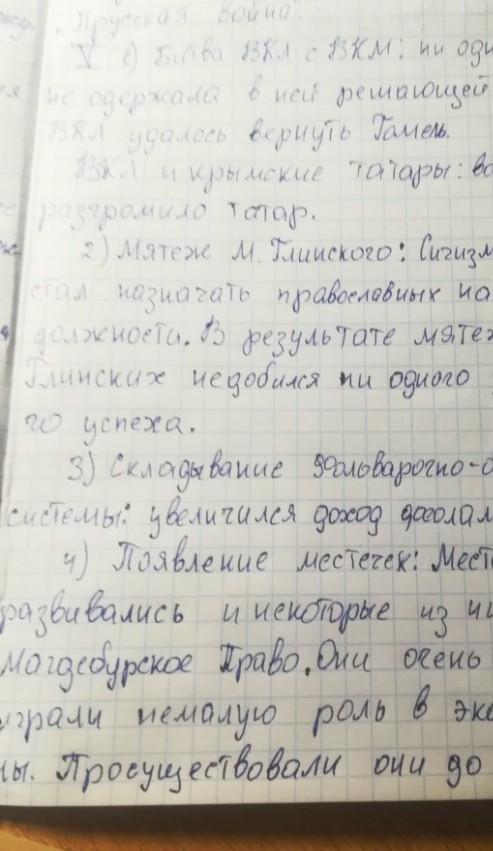 "Прусская война".
V 1) Битва ВКЛ с ВКМ: ни оди
не одержала в ней решающей
ВКЛ удалось вернуть Гомель.
ВКЛ и крымские татары: во
разгромило татар.
2) Мятеж М. Глинского: Сигизм
стал назначать православных на
должности. В результате мятеж
Глинских недобился ни одного
го успеха.
3) Складывание фольварочно-
системы: увеличился доход
4) Появление местечек: Мест
развивались и некоторые из ни
Магдебурское Право. Они очень
играли немалую роль в эко
ны. Просуществовали они до